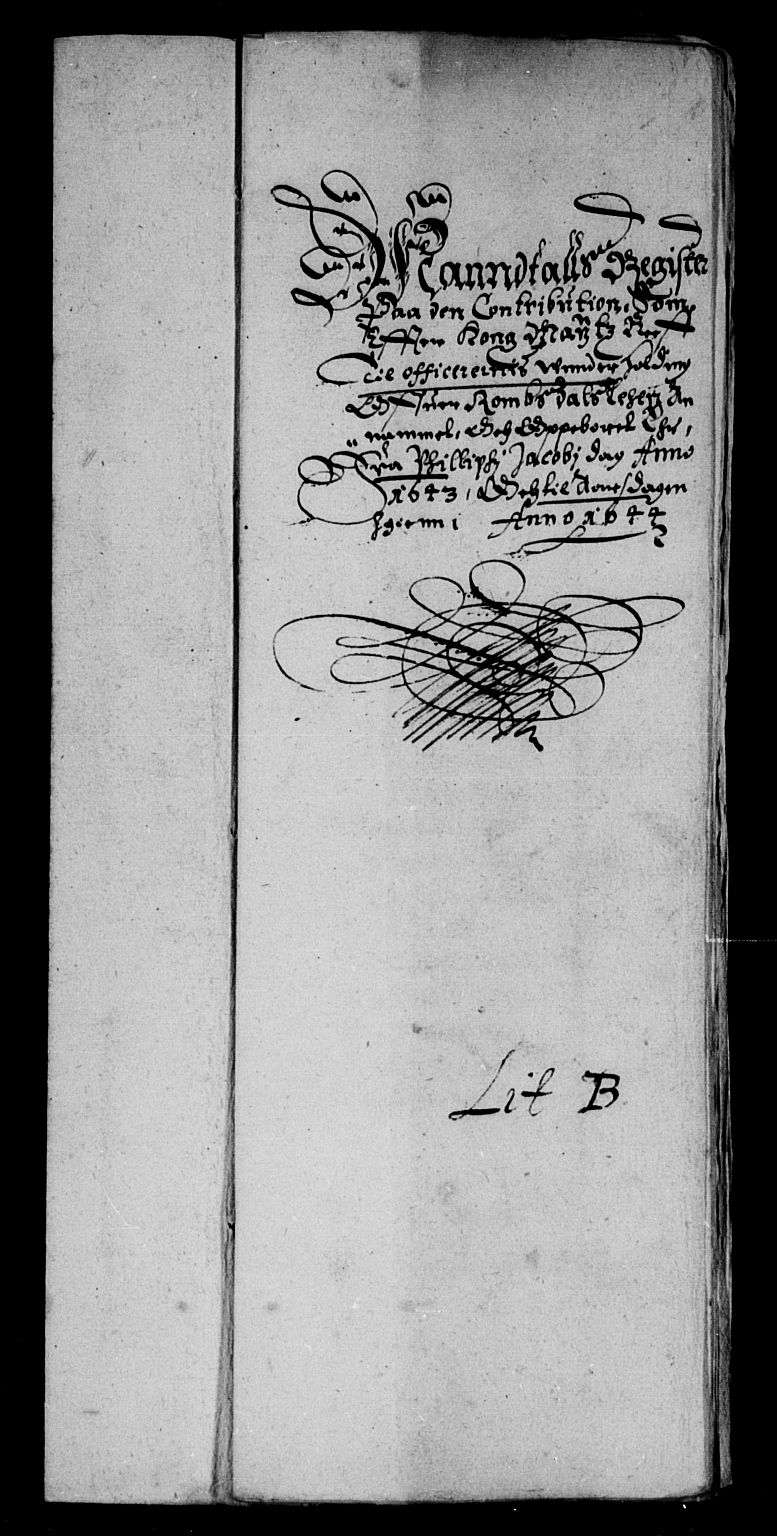 Manndtalls Register
Paa den Contribution, Som
Effter Kong Maÿtz Breff
Till officerernes Wnnderholding
Offuer Rombsdals Lehn An
nammet, Och Oppebored Ehr,
Fra Philliphi Jacobj dag Anno
1643, Och till Aarsdagen
Igienn i Anno 1644
Lit B